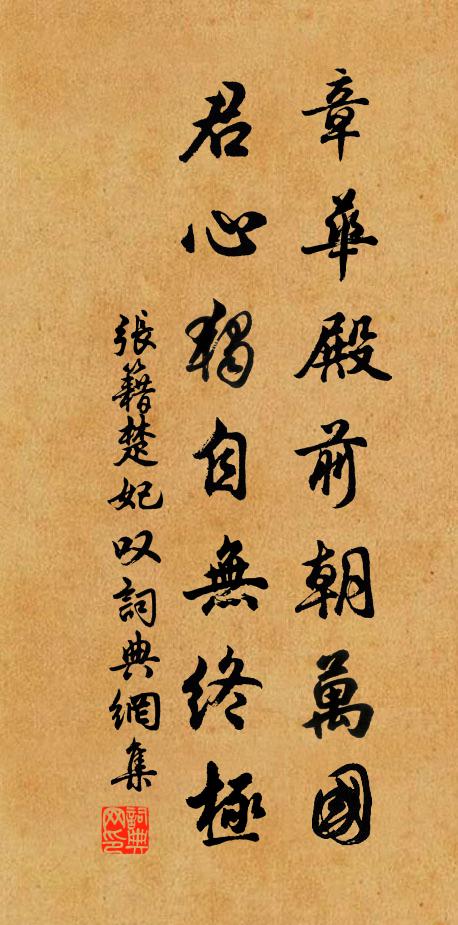 章華殿前朝萬國
君心獨自無終極
張籍楚妃叹詞典網集
詞典网印